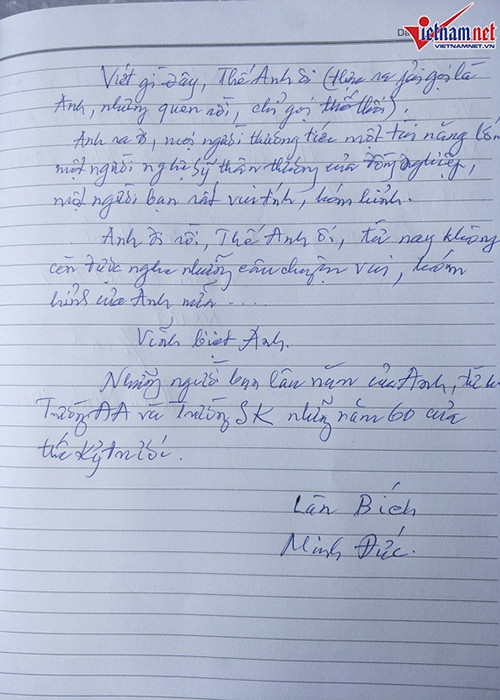 Vietnamnet
VIETNAMNET.VN
Viết gì đây, Thế Anh ơi (thừa ra phải gọi là
Anh, nhưng quen rồi, chỉ gọi thế thôi).
Anh ra đi, mọi người thương tiếc một tài năng lớn
một người nghệ sỹ thân thương của đồng nghiệp,
một người bạn rất vui tính, hóm hỉnh.
Anh đi rồi, Thế Anh ơi, từ nay không
còn được nghe những câu chuyện vui, hóm
hỉnh của Anh nữa .....
Vĩnh biệt Anh.
Những người bạn lâu năm của Anh, từ
Trường AA và Trường SK những năm 60 của
thế kỷ trước.
Lân Bích
Minh Đức.